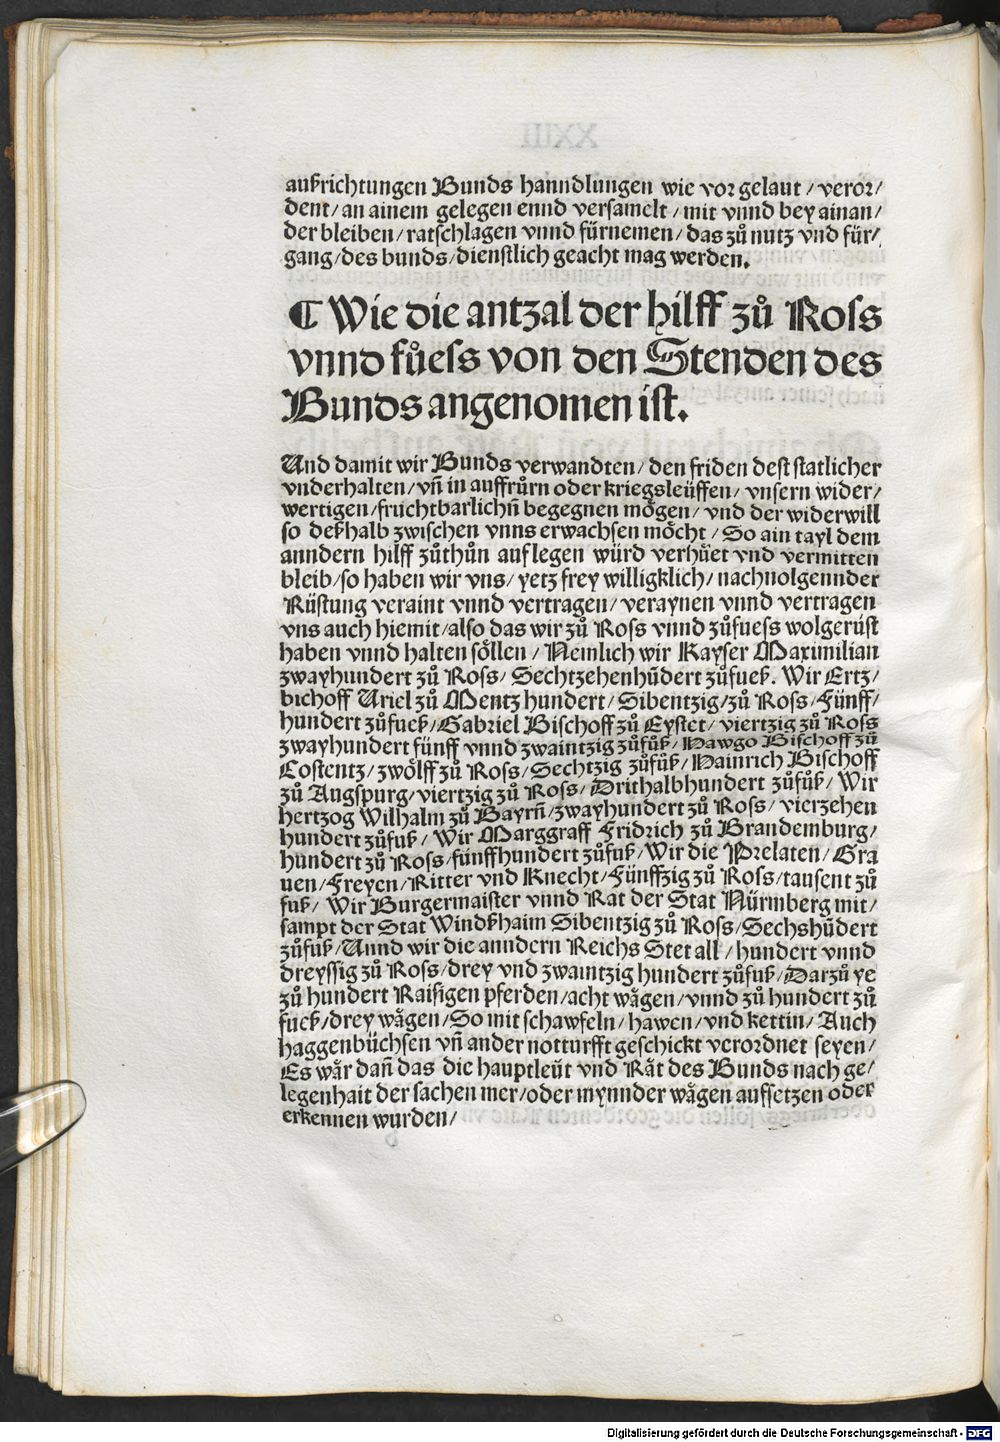 außrichtungen Bunds hanndlungen wie vor gelaut / veror/
dent / an ainem gelegen ennd versamelt / mit vnnd bey ainan/
der bleiben / ratschlagen vnnd fürnemen / das zů nutz vnd für/
gang / des bunds / dienstlich geacht mag werden.
¶ Wie die antzal der hilff zů Ross
vnnd fůess von den Stenden des
Bunds angenomen ist.
Und damit wir Bunds verwandten / den friden dest statlicher
vnderhalten / vñ in auffrůrn oder kriegsleüffen / vnsern wider/
wertigen / fruchtbarlichñ begegnen mögen / vnd der widerwill
so deßhalb zwischen vnns erwachsen möcht / So ain tayl dem
anndern hilff zůthůn auflegen würd verhüet vnd vermitten
bleib / so haben wir vns / yetz frey willigklich / nachuolgennder
Rüstung veraint vnnd vertragen / veraynen vnnd vertragen
vns auch hiemit / also das wir zů Ross vnnd zůfuess wolgerüst
haben vnnd halten söllen / Nemlich wir Kayser Maximilian
zwayhundert zů Ross / Sechtzehenhūdert zůfueß. Wir Ertz/
bichoff Uriel zů Mentz hundert / Sibentzig / zů Ross / Fünff/
hundert zůfueß / Gabriel Bischoff zů Eystet / viertzig zů Ross
zwayhundert fünff vnnd zwaintzig zůfůß / Hawgo Bischoff zů
Costentz / zwölff zů Ross / Sechtzig zůfůß / Hainrich Bischoff
zů Augspurg / viertzig zů Ross / Drithalbhundert zůfůß / Wir
hertzog Wilhalm zů Bayrñ / zwayhundert zů Ross / vierzehen
hundert zůfuß / Wir Marggraff Fridrich zů Brandemburg /
hundert zů Ross / fünffhundert zůfuß / Wir die Prelaten / Gra
uen / Freyen / Ritter vnd Knecht / Fünffzig zů Ross / tausent zů
fuß / Wir Burgermaister vnnd Rat der Stat Nürmberg mit/
sampt der Stat Windßhaim Sibentzig zů Ross / Sechshūdert
zůfuß / Unnd wir die anndern Reichs Stet all / hundert vnnd
dreyssig zů Ross / drey vnd zwaintzig hundert zůfuß / Darzů ye
zů hundert Raisigen pferden / acht wägen / vnnd zů hundert zů
fueß / drey wägen / So mit schawfeln / hawen / vnd kettin / Auch
haggenbüchsen vñ ander notturfft geschickt verordnet seyen /
Es wär dañ das die hauptleüt vnd Rät des Bunds nach ge/
legenhait der sachen mer / oder mynnder wägen auffsetzen oder
erkennen wurden /
Digitalisierung gefördert durch die Deutsche Forschungsgemeinschaft - DFG